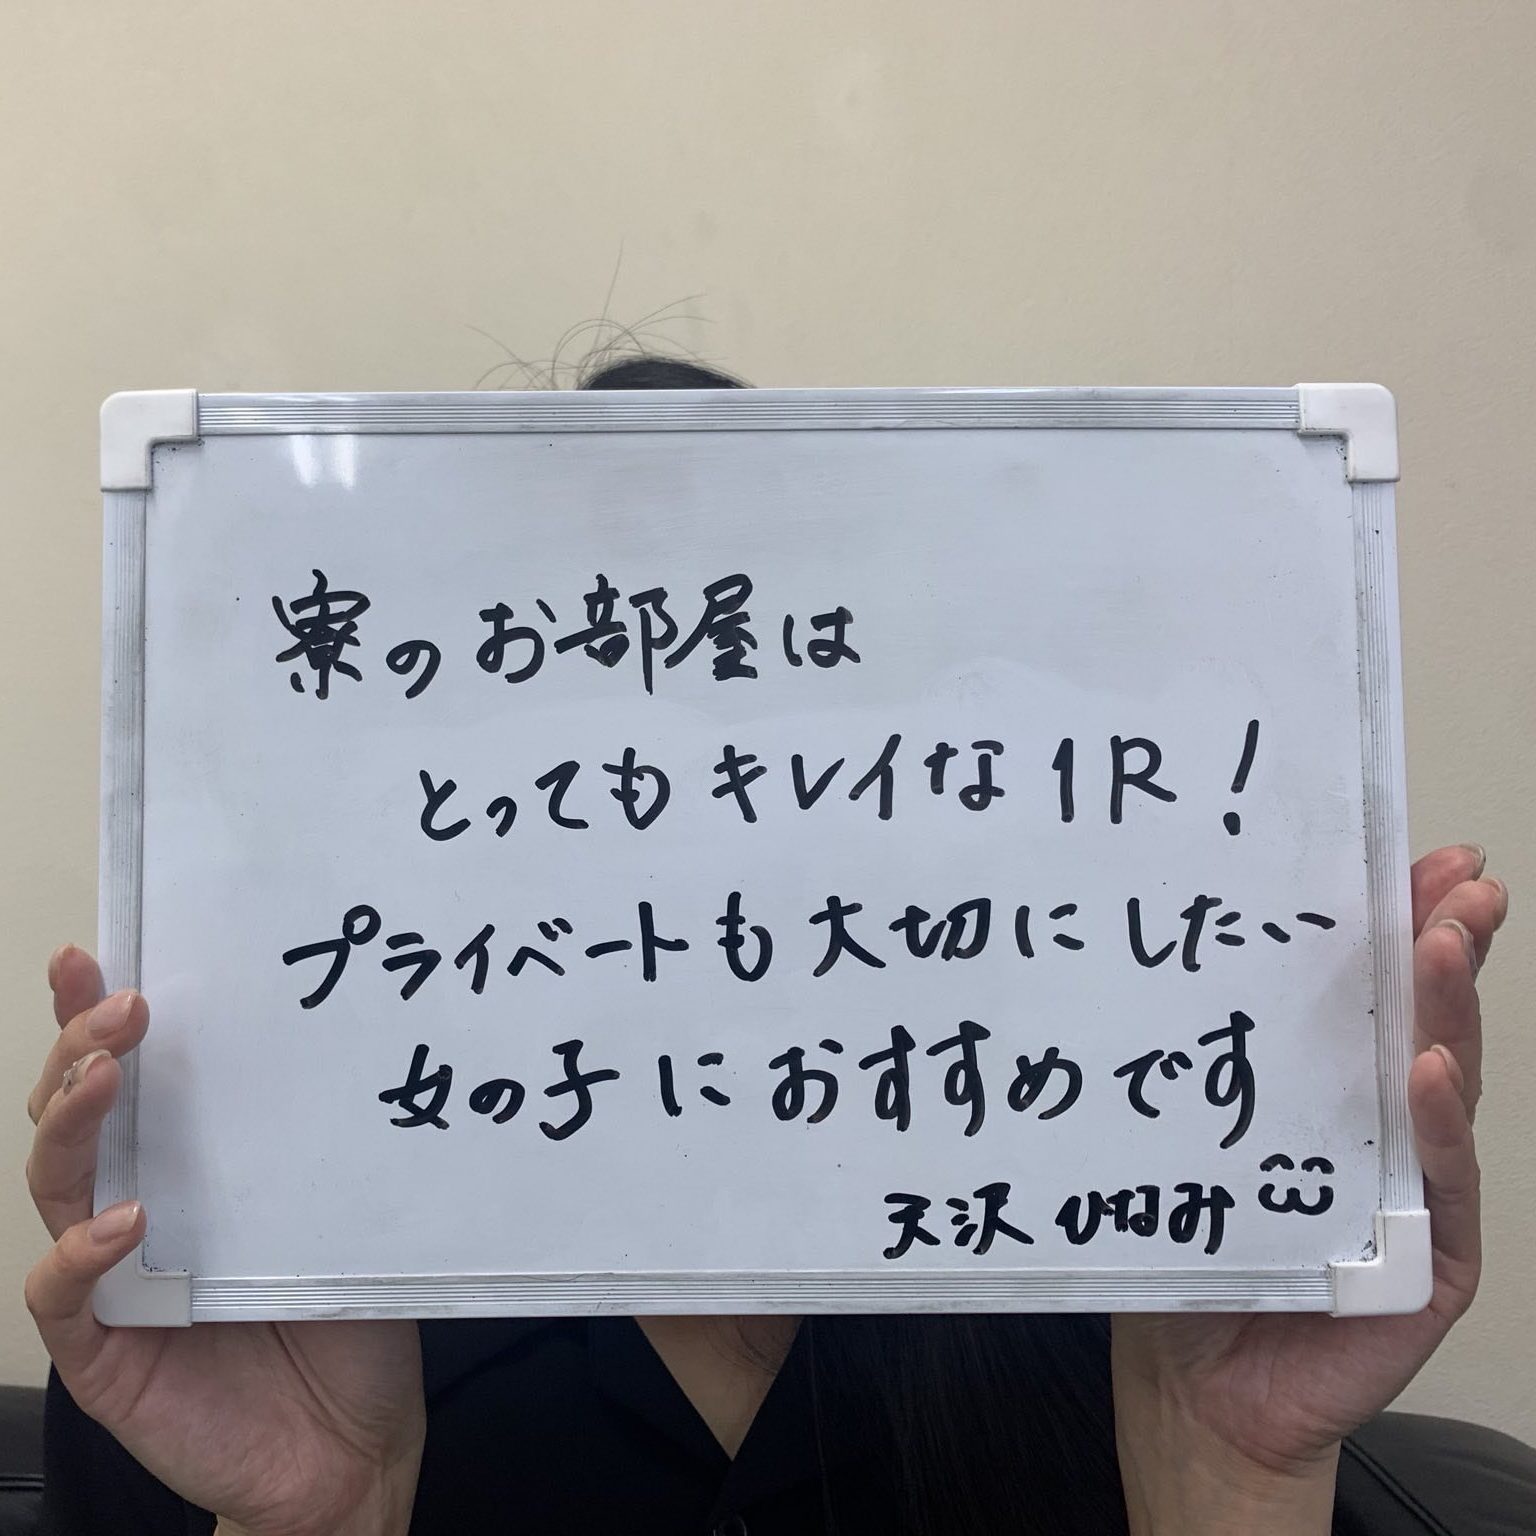 寮のお部屋は
とってもキレイな1R！
プライベートも大切にしたい
女の子におすすめです
天沢ひなみ